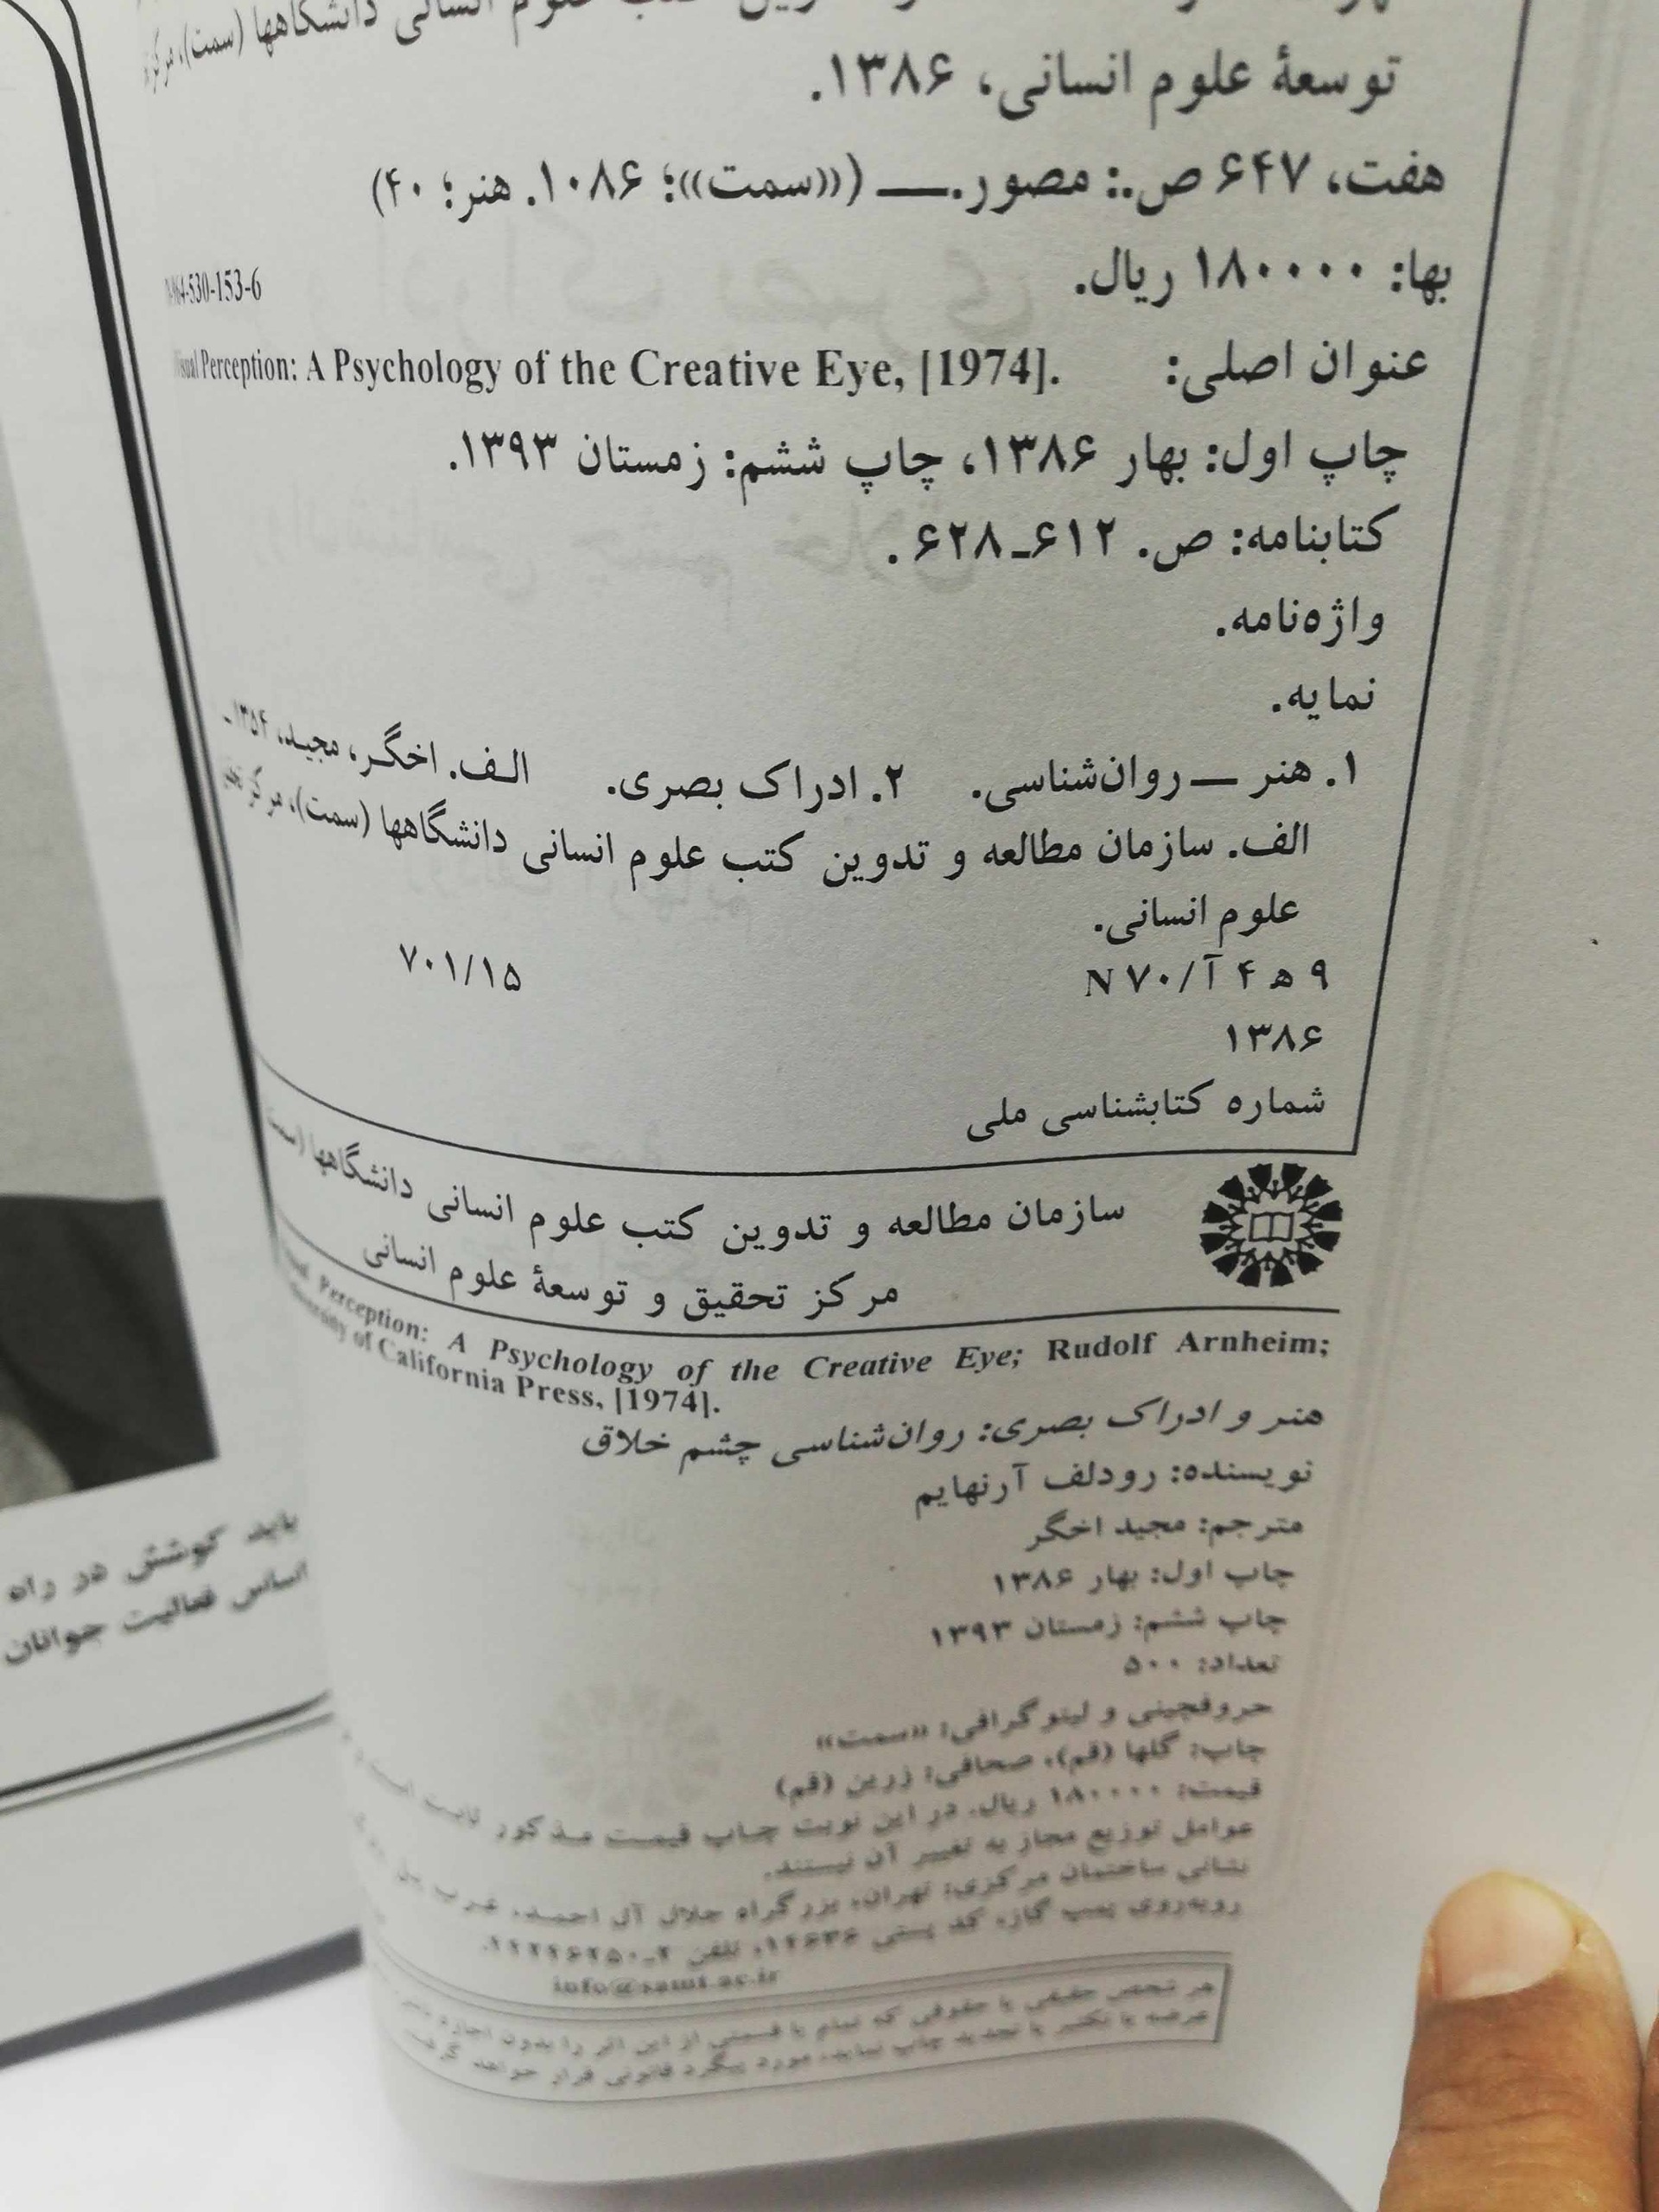 علوم انسانی دانشگاهها (سمت)، مرکز
توسعهٔ علوم انسانی، ۱۳۸۶.
هفت، ۶۴۷ ص.: مصور.ـــ («سمت»؛ ۱۰۸۶. هنر؛ ۴۰)
بها: ۱۸۰۰۰۰ ریال.
964-530-153-6
عنوان اصلی: Visual Perception: A Psychology of the Creative Eye, [1974].
چاپ اول: بهار ۱۳۸۶، چاپ ششم: زمستان ۱۳۹۳.
کتابنامه: ص. ۶۱۲ـ۶۲۸.
واژه‌نامه.
نمایه.
۱. هنر ـــ روان‌شناسی. ۲. ادراک بصری. الـف. اخگـر، مجیـد، ۱۳۵۴ـ
الف. سازمان مطالعه و تدوین کتب علوم انسانی دانشگاهها (سمت)، مرکز
علوم انسانی.
۹ ه ۴ آ/ N ۷۰ ۷۰۱/۱۵
۱۳۸۶
شماره کتابشناسی ملی
سازمان مطالعه و تدوین کتب علوم انسانی دانشگاهها (سمت)
مرکز تحقیق و توسعهٔ علوم انسانی
Perception: A Psychology of the Creative Eye; Rudolf Arnheim;
University of California Press, [1974].
هنر و ادراک بصری: روان‌شناسی چشم خلاق
نویسنده: رودلف آرنهایم
مترجم: مجید اخگر
چاپ اول: بهار ۱۳۸۶
چاپ ششم: زمستان ۱۳۹۳
تعداد: ۵۰۰
حروفچینی و لیتوگرافی: «سمت»
چاپ: گلها (قم)، صحافی: زرین (قم)
قیمت: ۱۸۰۰۰۰ ریال. در این نوبت چاپ قیمت مذکور ثابت است و
عوامل توزیع مجاز به تغییر آن نیستند.
نشانی ساختمان مرکزی: تهران، بزرگراه جلال آل احمد، غرب پل
روبه‌روی پمپ گاز، کد پستی ۱۴۶۳۶، تلفن ۲ـ۴۴۲۴۶۲۵۰.
info@samt.ac.ir
هر شخص حقیقی یا حقوقی که تمام یا قسمتی از این اثر را بدون اجازه
عرضه یا تکثیر یا تجدید چاپ نماید، مورد پیگرد قانونی قرار خواهد گرفت.
باید کوشش در راه
اساس فعالیت جوانان